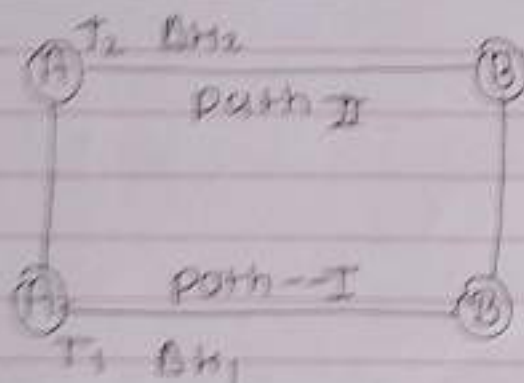 A T₂ ΔH₂ B
Path II
Path--I
A B
T₁ ΔH₁